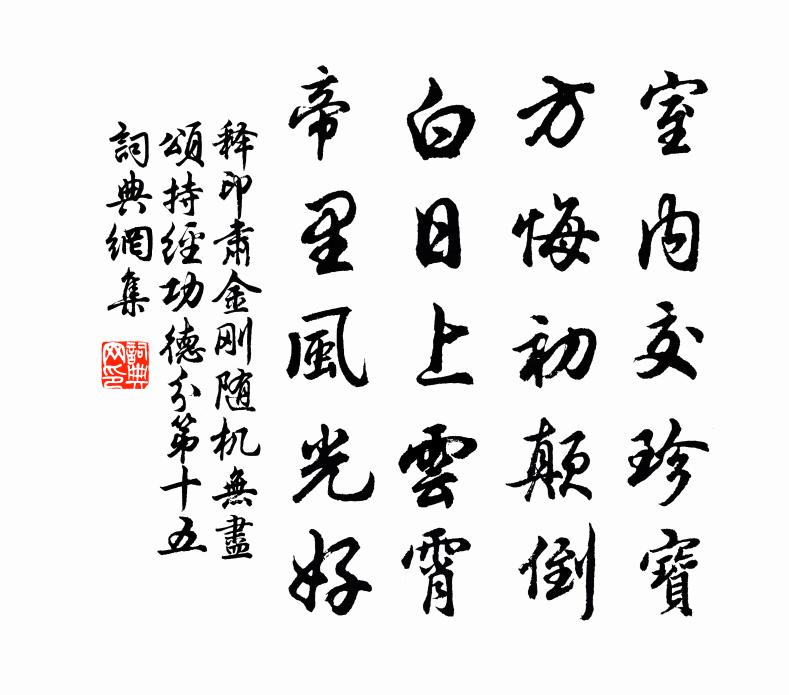 室内交珍寶
方悔初顛倒
白日上雲霄
帝里風光好
释印肃金刚随机無盡
頌持經功德分第十五
詞典網集
詞典
网印